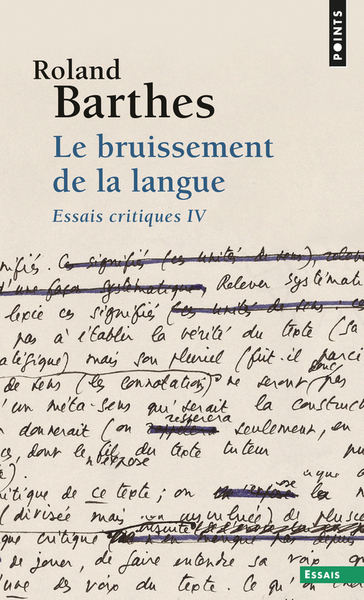 POINTS
Roland
Barthes
Le bruissement
de la langue
Essais critiques IV
nifiés. Ces signifiés (ces unités de sens), 
d'une façon systématique, Relever systémati
lexie ces signifiés (ces unités de sens :
pas à établir la vérité du texte (sa
atégique) mais son pluriel (fût-il parci
donc
de sens (les connotations) ne seront pas
d'un méta-sens qu'serait la construct
respectera
donnerait (on seulement, en
es, dont le fil du texte tuteur pu
n'expose
que a
itique de ce texte ; on la
(divisée mais non de plusieu
ensuite
que critique
de jouer, de faire entendre sa voix
d'une des voix du texte. Ce qu'on
ESSAIS